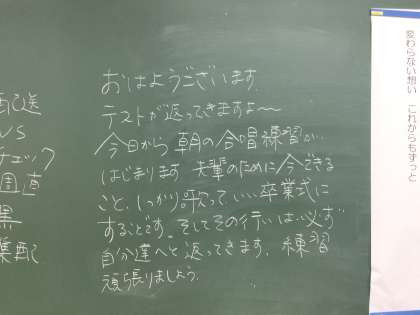 おはようございます.
テストが返ってきますよ〜
今日から朝の合唱練習が..
はじまります 先輩のために今できる
こと、しっかり歌って、いい卒業式に
することです。そしてその行いは必ず
自分達へと返ってきます. 練習
頑張りましょう.
配送
VS
チェック
週直
黒
葉配
変わらない想い これからもずっと